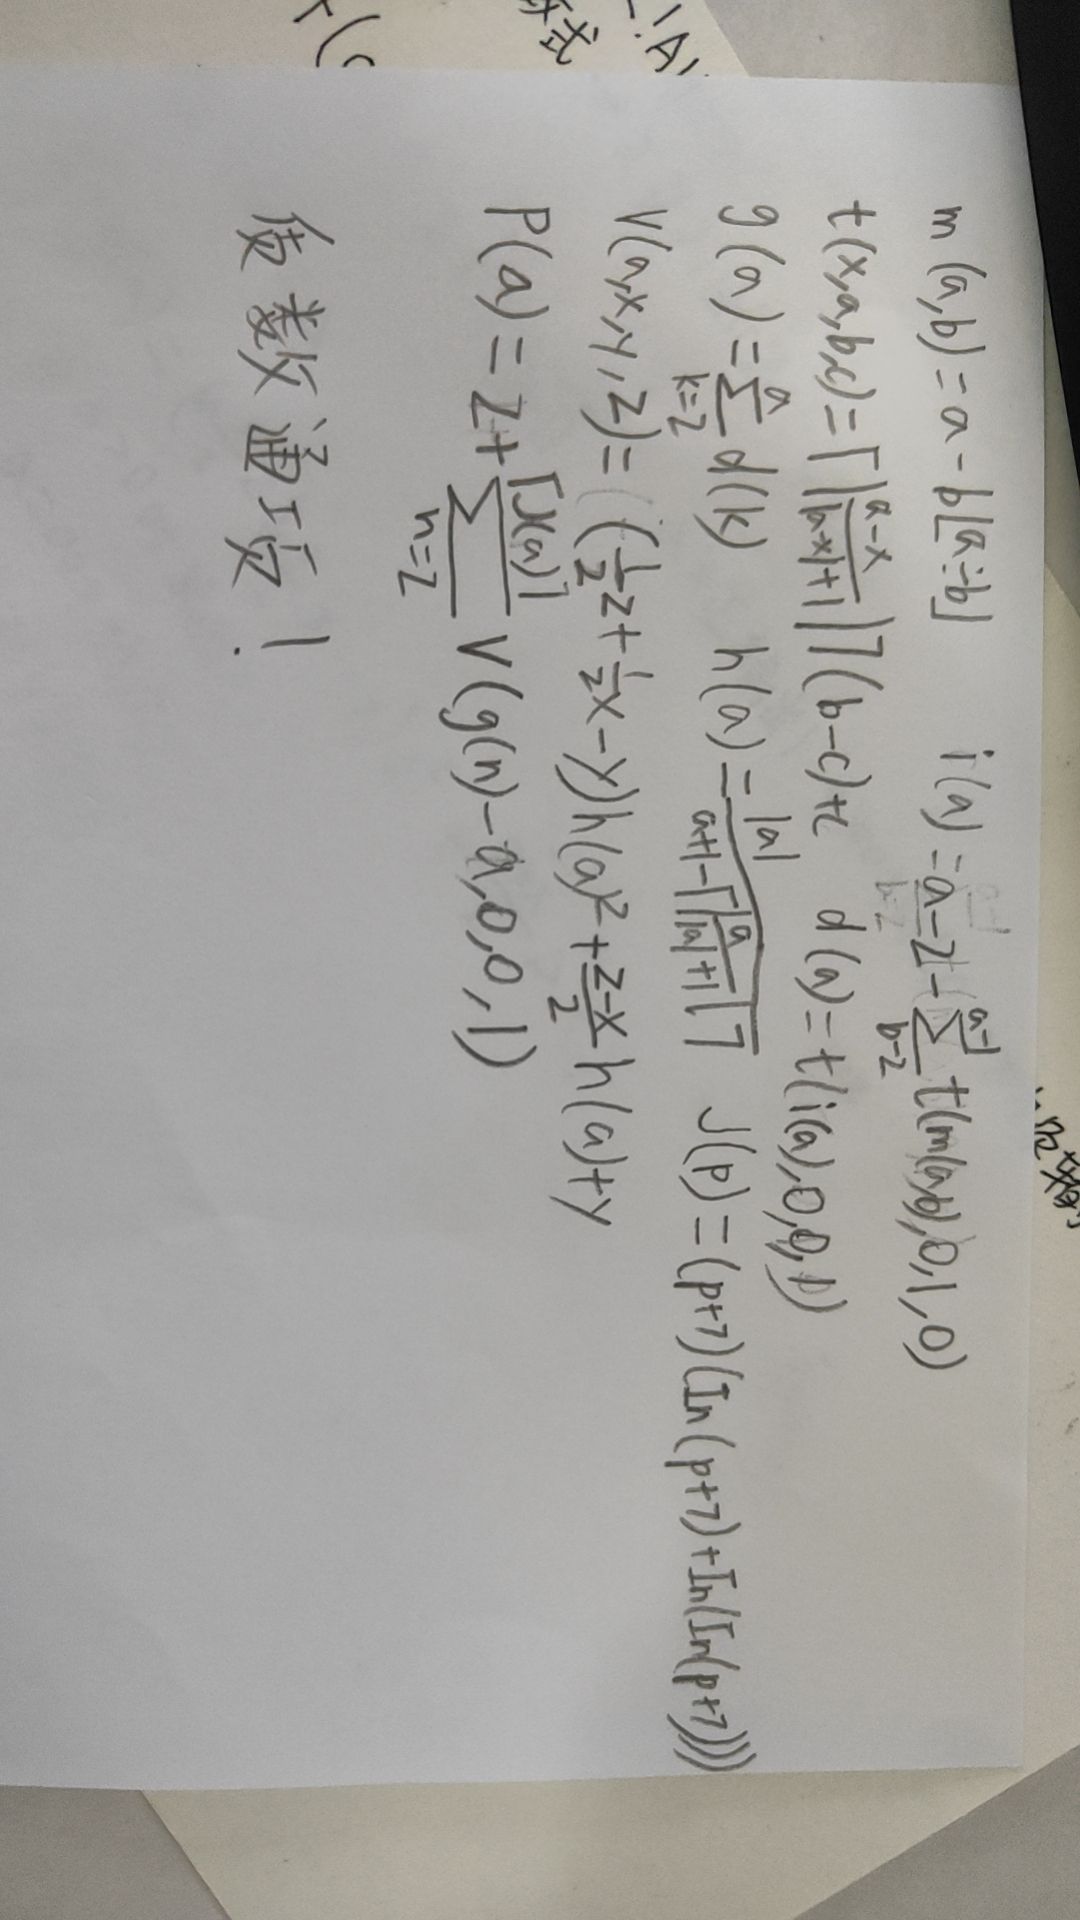 m(a,b)=a-b⌊a÷b⌋ i(a)=a-2-(∑_{b=2}^{a-1} t(m(a,b),0,1,0)
t(x,a,b,c)=⌈|(a-x)/(|a-x|+1)|⌉(b-c)+c d(a)=t(i(a),0,0,1)
g(a)=∑_{k=2}^{a} d(k) h(a)=|a|/(a+1-⌈|a/(|a|+1)|⌉) J(p)=(p+7)(In(p+7)+In(In(p+7)))
V(a,x,y,z)=(½z+½x-y)h(a)²+(z-x)/2 h(a)+y
P(a)=2+∑_{n=2}^{⌈J(a)⌉} V(g(n)-a,0,0,1)
质数通项!